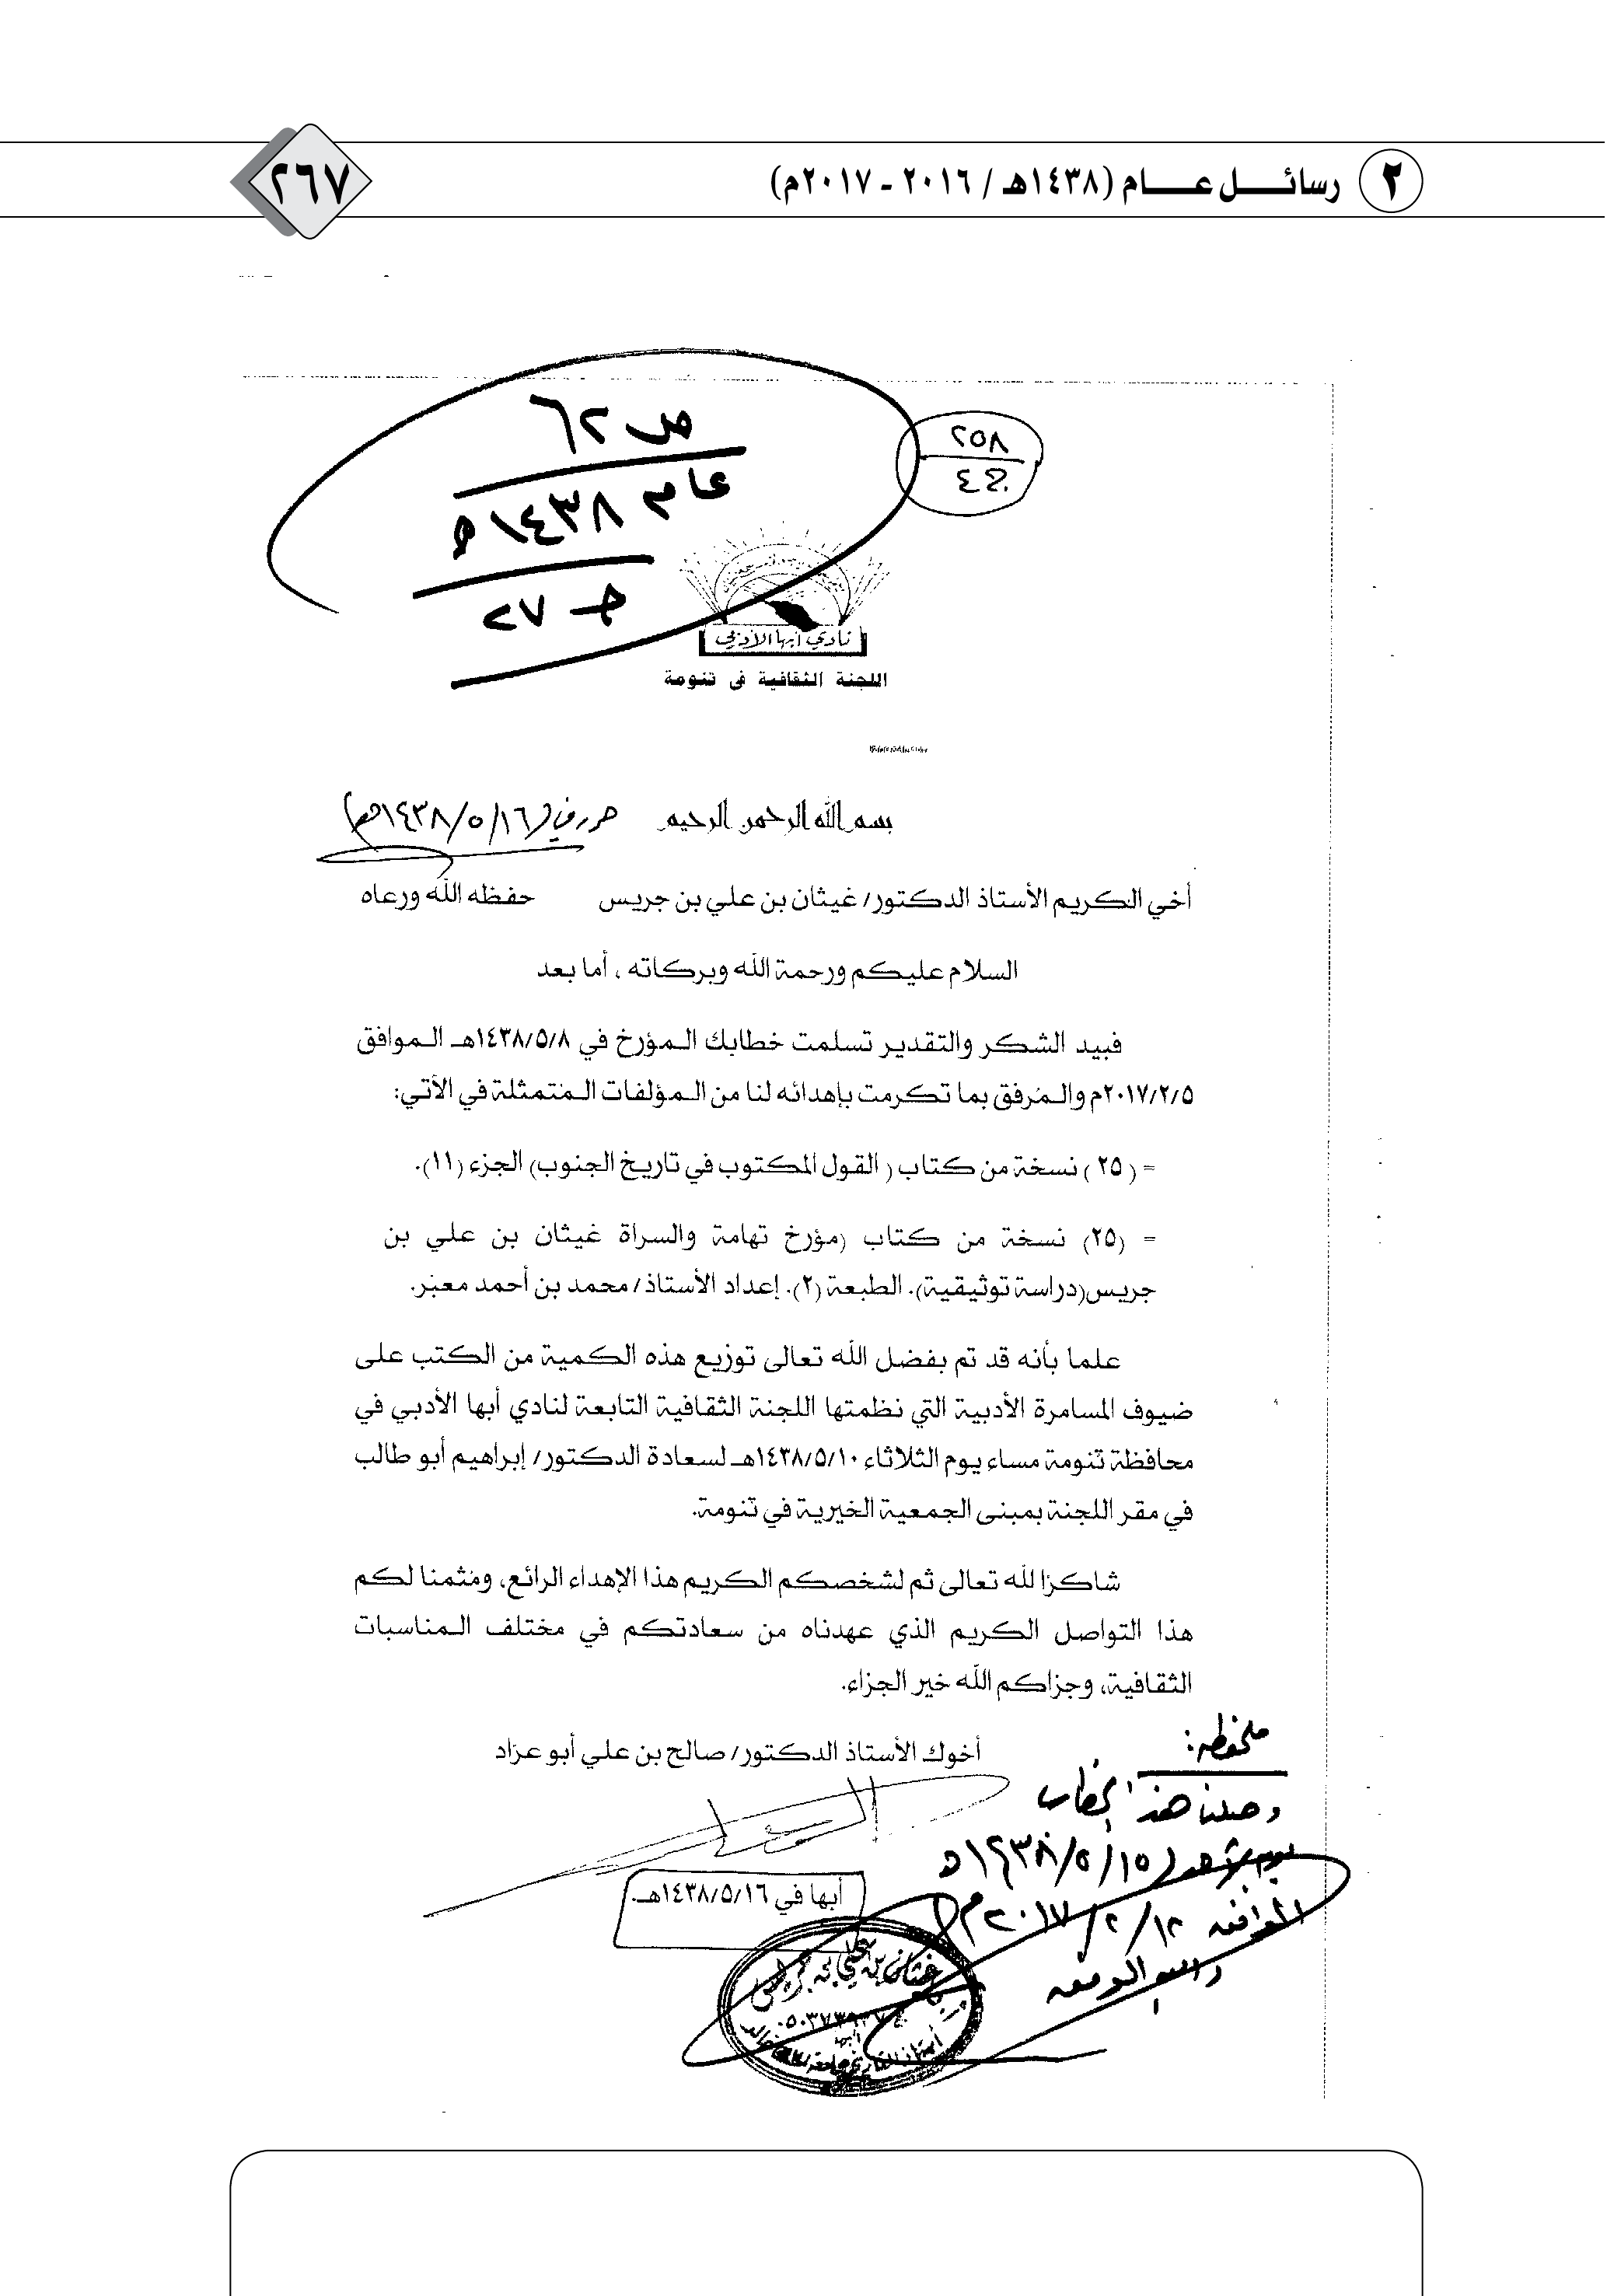 ٢ رسائل عام (١٤٣٨هـ / ٢٠١٦ - ٢٠١٧م)
٢٦٧
ص ٦٢
عام ١٤٣٨ه
جـ ٢٧
٢٥٨
ج٤
نادي أبها الأدبي
اللجنة الثقافية في تنومة
بسم الله الرحمن الرحيم
حرر في (١٤٣٨/٥/١٦هـ)
أخي الكريم الأستاذ الدكتور/ غيثان بن علي بن جريس حفظه الله ورعاه
السلام عليكم ورحمة الله وبركاته ، أما بعد
فبيد الشكر والتقدير تسلمت خطابك المؤرخ في ١٤٣٨/٥/٨هـ الموافق
٢٠١٧/٢/٥م والمرفق بما تكرمت بإهدائه لنا من المؤلفات المتمثلة في الأتي:
= (٢٥ ) نسخة من كتاب ( القول المكتوب في تاريخ الجنوب) الجزء (١١).
= (٢٥) نسخة من كتاب (مؤرخ تهامة والسراة غيثان بن علي بن
جريس(دراسة توثيقية). الطبعة (٢). إعداد الأستاذ/ محمد بن أحمد معبّر.
علما بأنه قد تم بفضل الله تعالى توزيع هذه الكمية من الكتب على
ضيوف المسامرة الأدبية التي نظمتها اللجنة الثقافية التابعة لنادي أبها الأدبي في
محافظة تنومة مساء يوم الثلاثاء ١٤٣٨/٥/١٠هـ لسعادة الدكتور/ إبراهيم أبو طالب
في مقر اللجنة بمبنى الجمعية الخيرية في تنومة.
شاكرا لله تعالى ثم لشخصكم الكريم هذا الإهداء الرائع، ومثمنا لكم
هذا التواصل الكريم الذي عهدناه من سعادتكم في مختلف المناسبات
الثقافية، وجزاكم الله خير الجزاء.
أخوك الأستاذ الدكتور/ صالح بن علي أبو عرّاد
أبها في ١٤٣٨/٥/١٦هـ.
ملحوظة:
وصلنا هذا الخطاب
يوم الأحد (١٤٣٨/٥/١٥ه
الموافق ٢٠١٧/٢/١٢م
والله الموفق
غيثان بن علي بن جريس
أبها